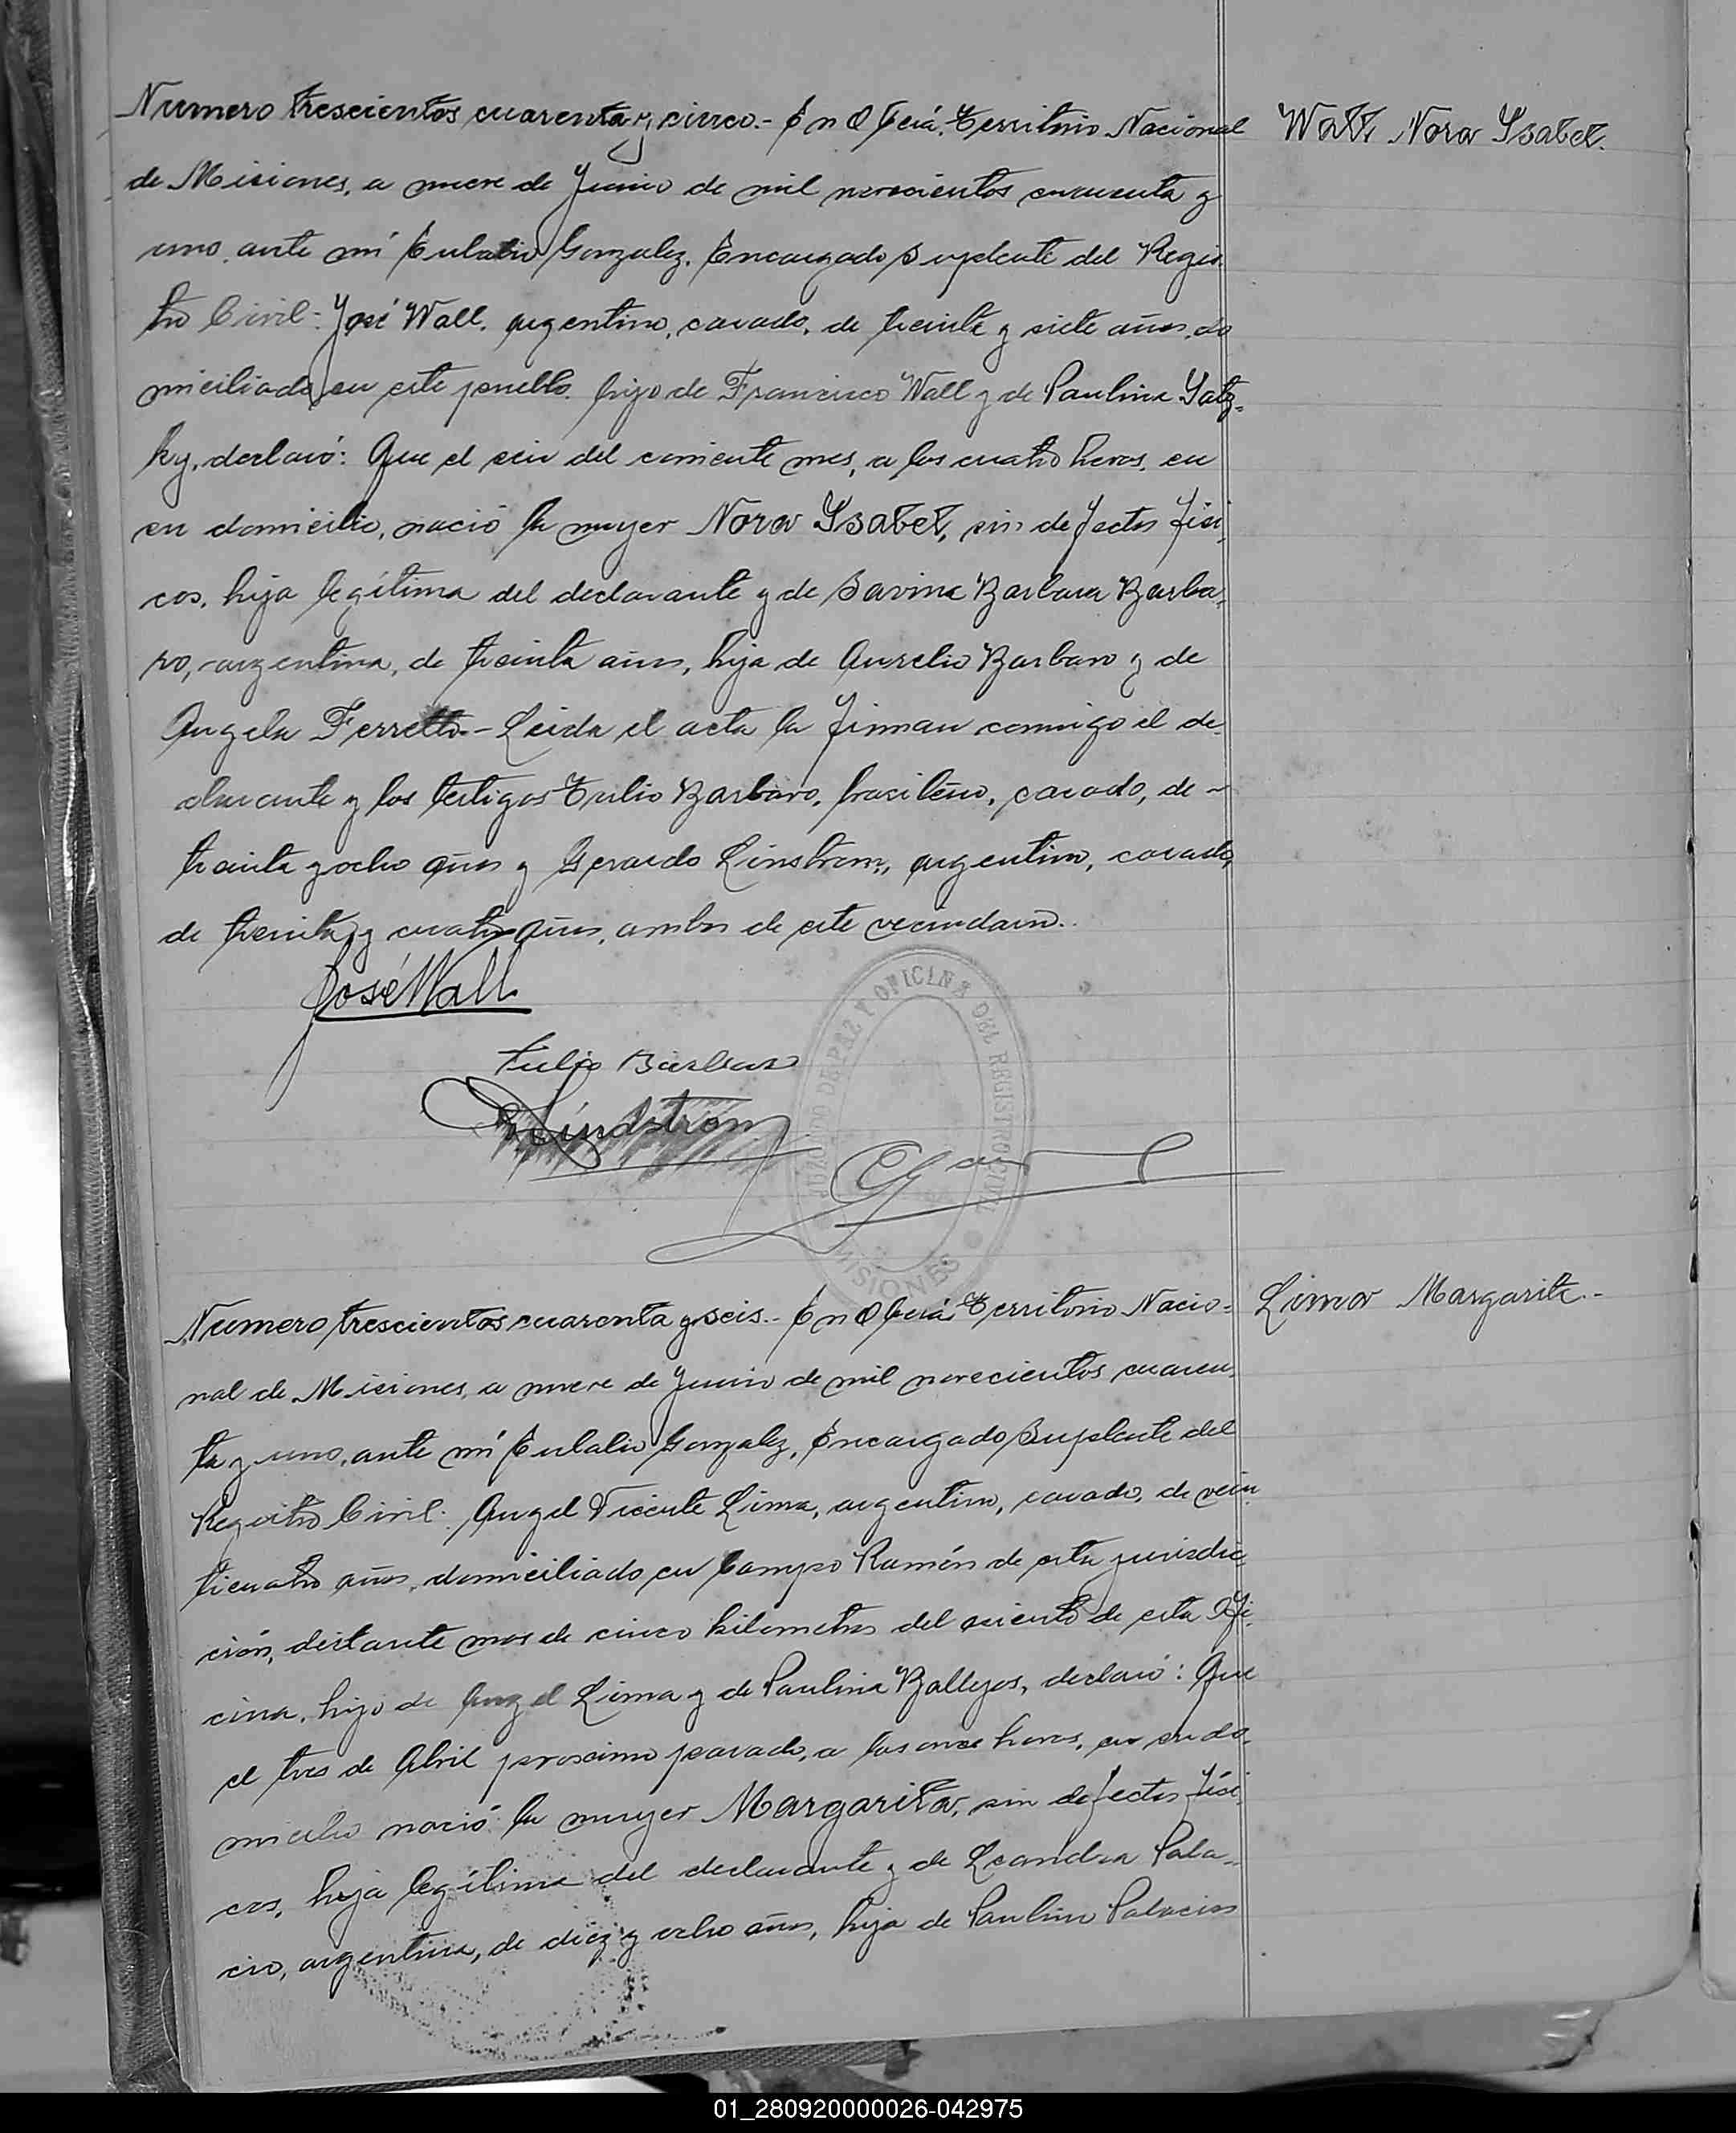 Numero trescientos cuarenta y cinco.- En Oberá, Territorio Nacional
Wall, Nora Ysabel.
de Misiones, a nueve de Junio de mil novecientos cuarenta y
uno, ante mí Eulalio Gonzalez, Encargado Suplente del Regis-
tro Civil: José Wall, argentino, casado, de treinta y siete años, do
miciliado en este pueblo, hijo de Francisco Wall y de Paulina Yatz-
ky, declaró: Que el seis del corriente mes, a las cuatro horas, en
su domicilio, nació la mujer Nora Ysabel, sin defectos físi-
cos, hija legítima del declarante y de Savina Barbara Barba-
ro, argentina, de treinta años, hija de Aurelio Barbaro y de
Angela Ferretto.- Leida el acta la firman conmigo el de-
clarante y los testigos Tulio Barbaro, brasileño, casado, de
treinta y ocho años y Gerardo Linstrom, argentino, casado,
de treinta y cuatro años, ambos de este vecindario.
José Wall
Tulio Barbaro
Lindstrom
JUZGADO DE PAZ Y OFICINA DEL REGISTRO CIVIL
MISIONES
Numero trescientos cuarenta y seis.- En Oberá, Territorio Nacio-
Lima Margarita.-
nal de Misiones, a nueve de Junio de mil novecientos cuaren-
ta y uno, ante mí Eulalio Gonzalez, Encargado Suplente del
Registro Civil: Angel Vicente Lima, argentino, casado, de vein
ticuatro años, domiciliado en Campo Ramón de esta jurisdic-
ción, distante mas de cinco kilometros del asiento de esta Ofi-
cina, hijo de Angel Lima y de Paulina Ballejos, declaró: Que
el tres de Abril proscimo pasado, a las once horas, en su do-
micilio nació la mujer Margarita, sin defectos físi-
cos, hija legítima del declarante y de Leandra Pala-
cio, argentina, de diez y ocho años, hija de Paulino Palacios
01_280920000026-042975